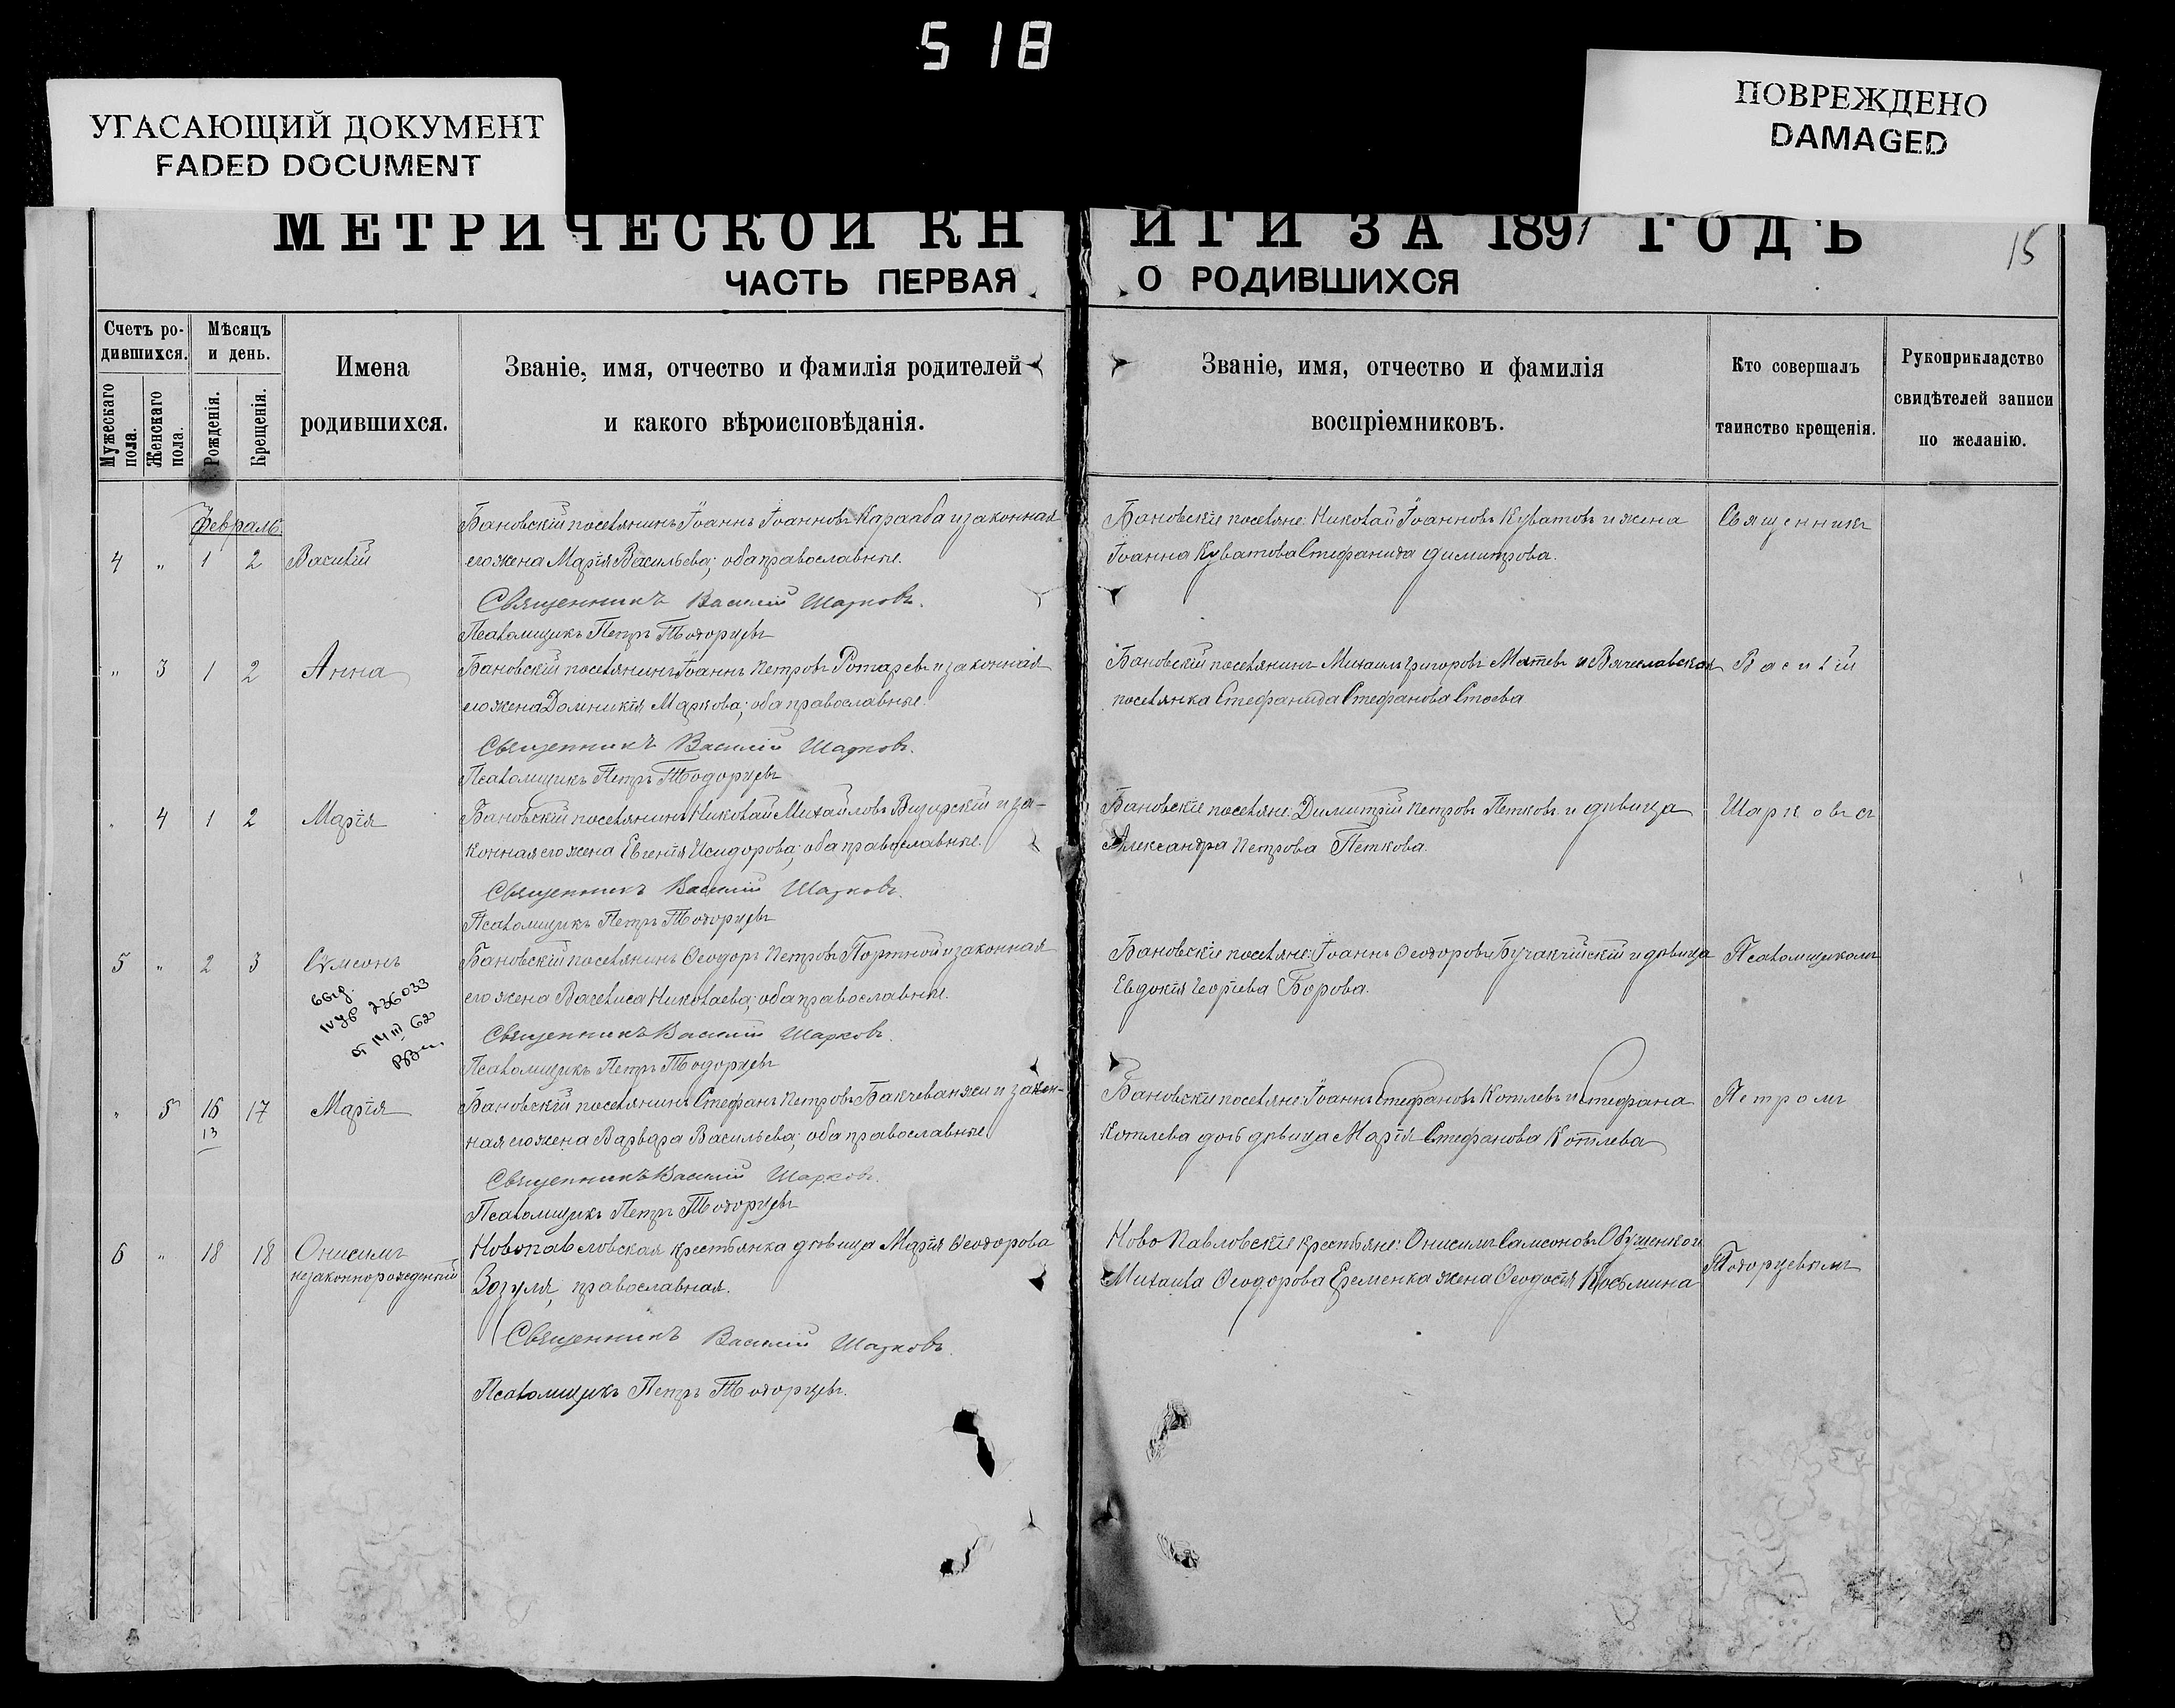 5 18
УГАСАЮЩИЙ ДОКУМЕНТ
FADED DOCUMENT
ПОВРЕЖДЕНО
DAMAGED
МЕТРИЧЕСКОЙ КНИГИ ЗА 1891 ГОДЪ
15
ЧАСТЬ ПЕРВАЯ О РОДИВШИХСЯ
Счетъ ро-
дившихся.
Мужескаго пола.
Женскаго пола.
Мѣсяцъ
и день.
Рожденія.
Крещенія.
Имена
родившихся.
Званіе, имя, отчество и фамилія родителей
и какого вѣроисповѣданія.
Званіе, имя, отчество и фамилія
воспріемниковъ.
Кто совершалъ
таинство крещенія.
Рукоприкладство
свидѣтелей записи
по желанію.
Февраль
4 „ 1 2 Василій
Бановскій поселянинъ Іоаннъ Іоанновъ Караába и законная
его жена Марія Васильева; оба православные.
Священникъ Василій Шарковъ.
Псаломщикъ Петръ Тодорцевъ
Бановскіе поселяне: Николай Іоанновъ Куватовъ и жена
Іоанна Куватова Стефанида Димитрова.
Священникъ
„ 3 1 2 Анна
Бановскій поселянинъ Іоаннъ Петровъ Ротаревъ и законная
его жена Домникія Маркова; оба православные.
Священникъ Василій Шарковъ.
Псаломщикъ Петръ Тодорцевъ
Бановскій поселянинъ Михаилъ Григоровъ Матевъ и Вячеславская
поселянка Стефанида Стефанова Стоева
Василій
„ 4 1 2 Марія
Бановскій поселянинъ Николай Михайловъ Визирскій и за-
конная его жена Евгенія Исидорова; оба православные.
Священникъ Василій Шарковъ.
Псаломщикъ Петръ Тодорцевъ
Бановскіе поселяне: Димитрій Петровъ Петковъ и дѣвица
Александра Петрова Петкова.
Шарковъ съ
5 „ 2 3 Сѵмеонъ
Бановскій поселянинъ Ѳеодоръ Петровъ Портной и законная
его жена Васелиса Николаева; оба православные.
Священникъ Василій Шарковъ.
Псаломщикъ Петръ Тодорцевъ
Бановскіе поселяне: Іоаннъ Ѳеодоровъ Бучакчійскій и дѣвица
Евдокія Георгіева Борова.
Псаломщикомъ
236033
от 14 III 62
„ 5 16 17 Марія
13
Бановскій поселянинъ Стефанъ Петровъ Бакчеванжи и закон-
ная его жена Варвара Васильева; оба православные.
Священникъ Василій Шарковъ.
Псаломщикъ Петръ Тодорцевъ
Бановскіе поселяне: Іоаннъ Стефановъ Котлевъ и Стефана
Котлева дочь дѣвица Марія Стефанова Котлева
Петромъ
6 „ 18 18 Онисимъ
незаконнорожденный
Новопавловская крестьянка дѣвица Марія Ѳеодорова
Зозуля, православная.
Священникъ Василій Шарковъ.
Псаломщикъ Петръ Тодорцевъ.
Ново Павловскіе крестьяне: Онисимъ Самсоновъ и
Михаила Ѳеодорова Еременка жена Ѳеодосія Косьмина
Тодорцевымъ